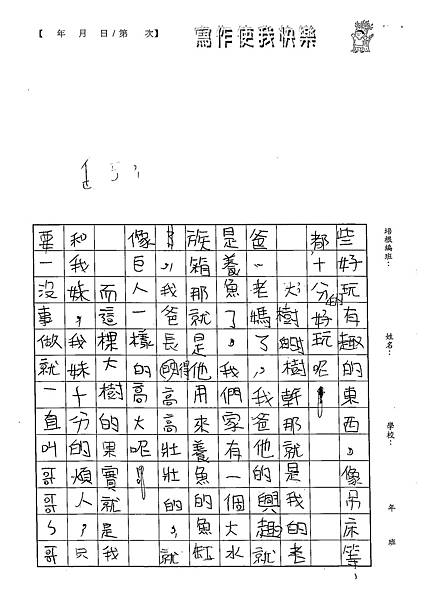 【 年 月 日/第 次】
寫作使我快樂
培根編班： 姓名： 學校： 年 班
些好玩有趣的東西。像吊床等，
都十分的好玩呢！
大樹的樹幹那就是我的老
爸、老媽了，我爸他的興趣就
是養魚了，我們家有一個大水
族箱那就是他用來養魚的魚缸
，我爸長得高高壯壯的，就
像巨人一樣的高大呢！
而這棵大樹的果實就是我
和我妹，我妹十分的煩人，只
要一沒事做就一直叫哥哥、哥